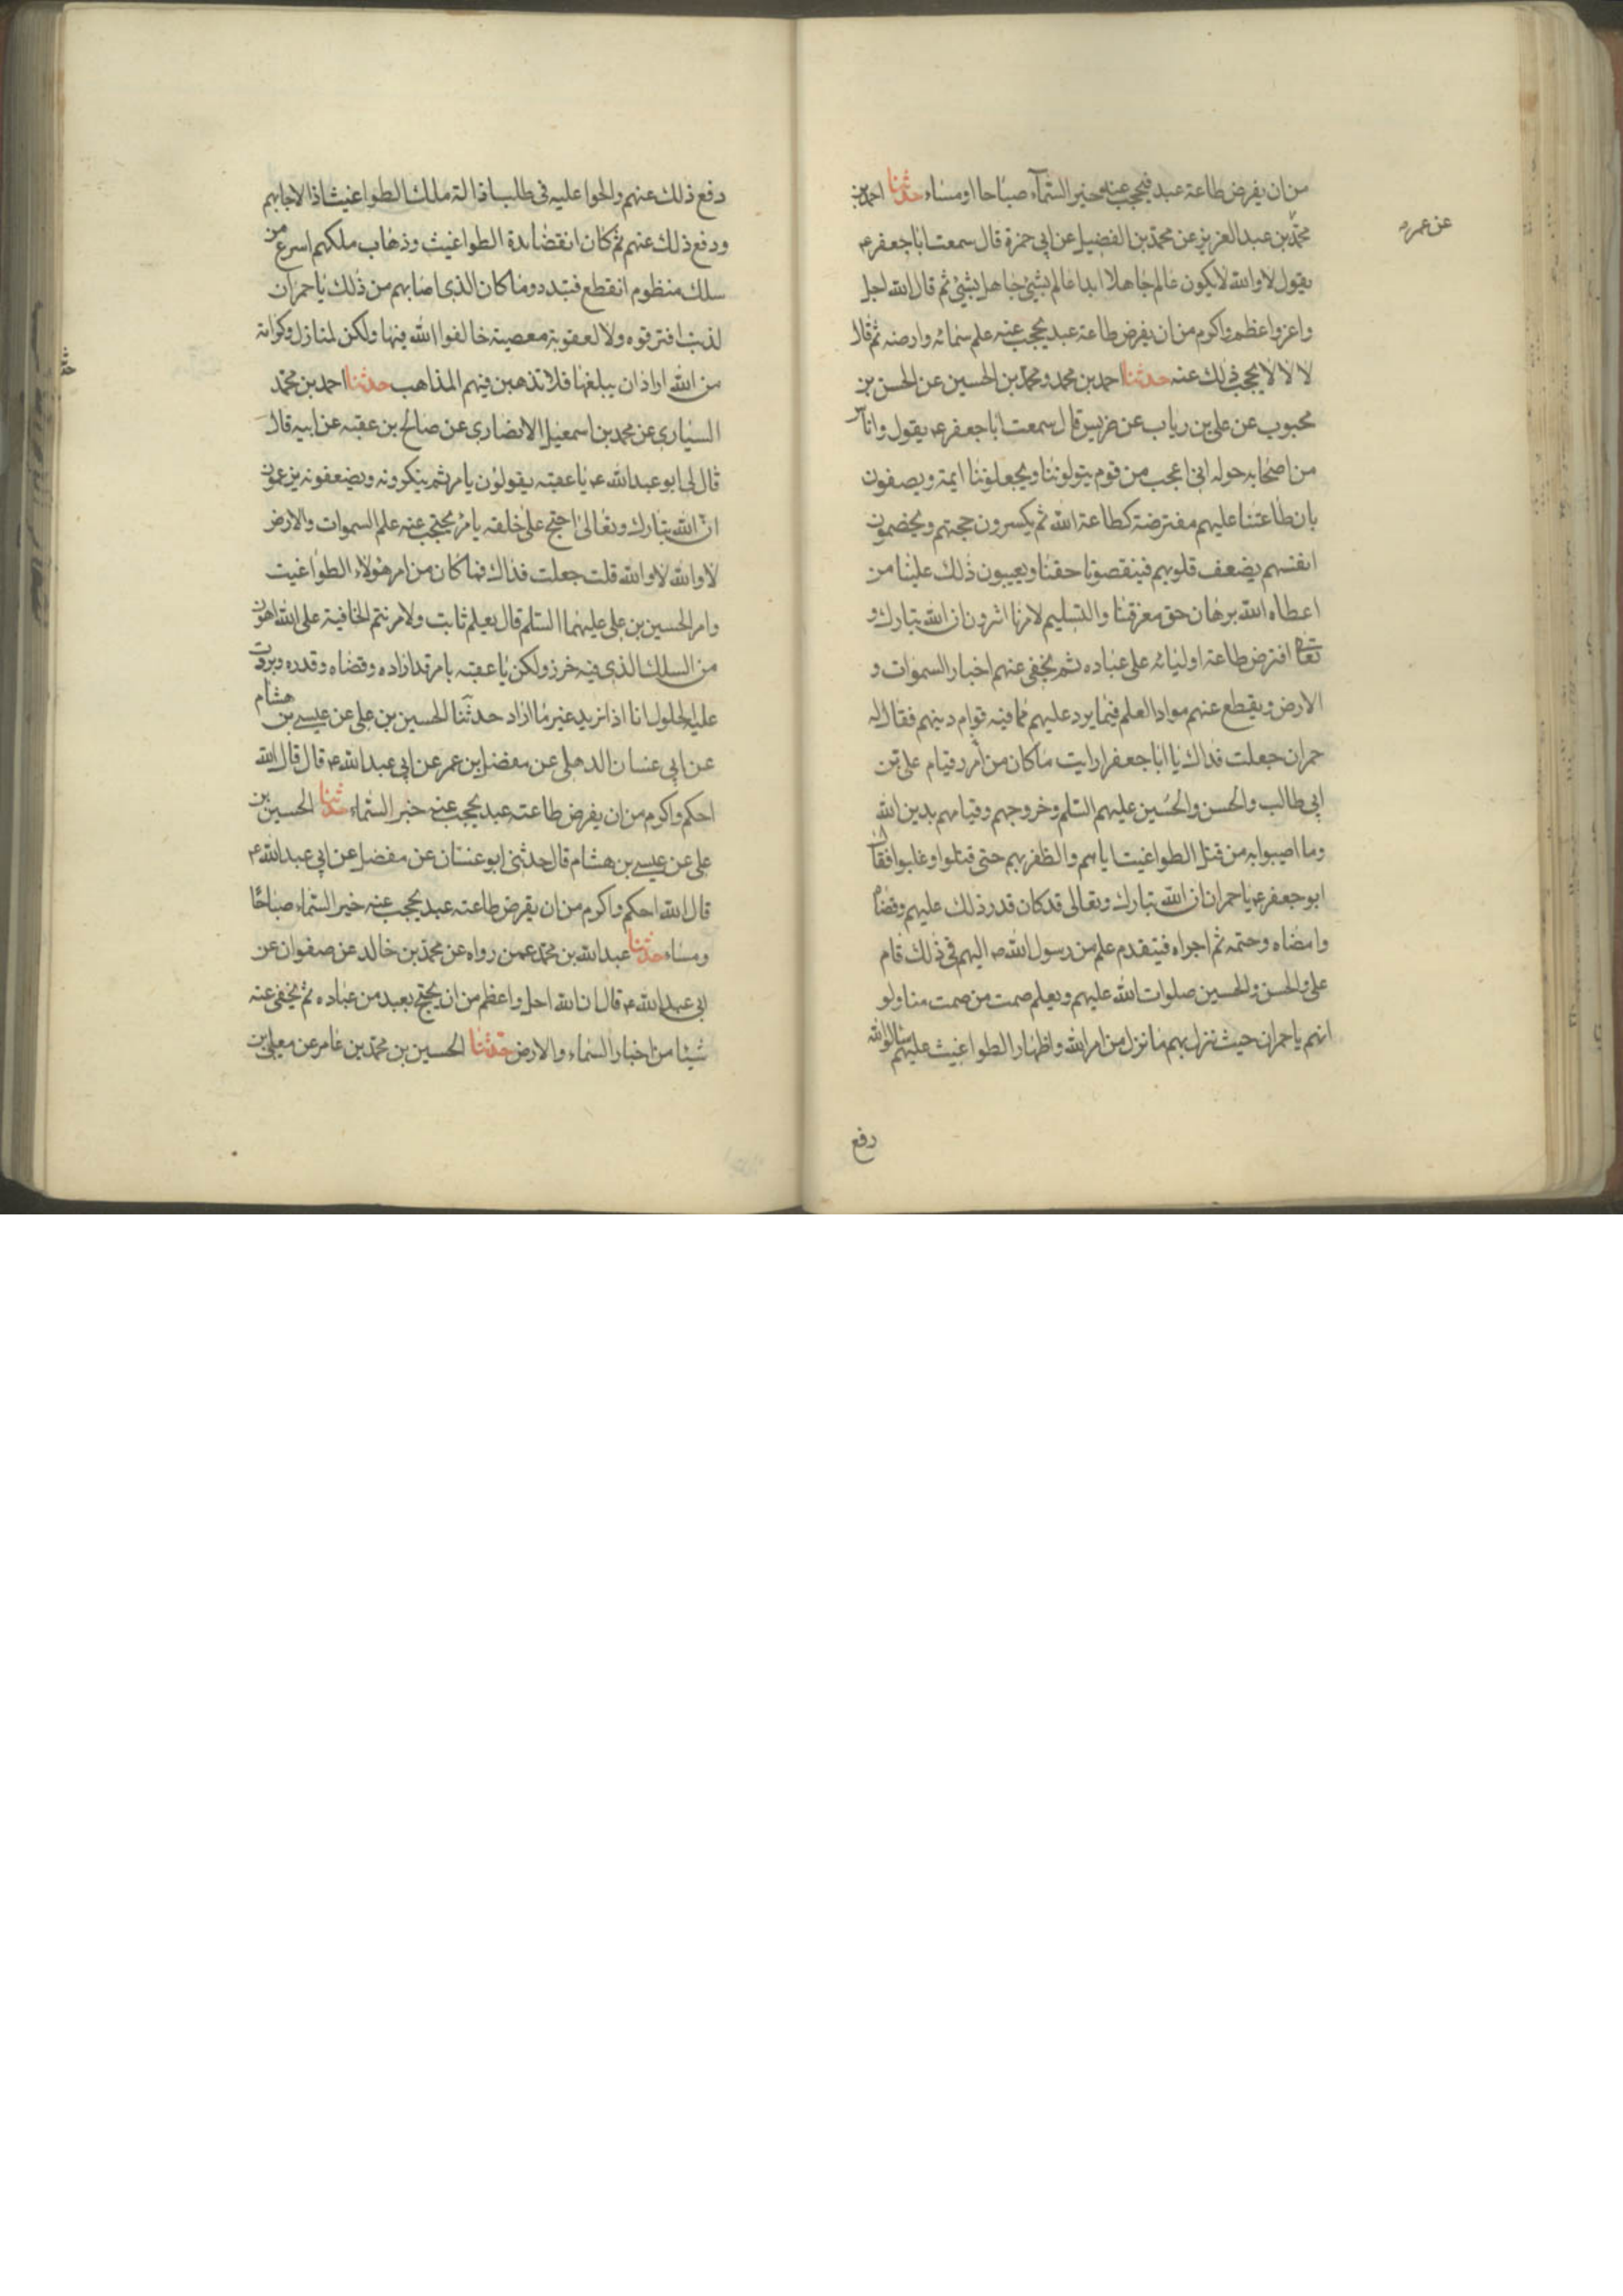 من ان يفرض طاعة عبد فيحجب عنه خبر السمآء صباحا او مساء حدثنا احمد بن
محمد بن عبد العزيز عن محمد بن الفضيل عن ابى حمزة قال سمعت ابا جعفر ع
عن عمر
يقول لا والله لا يكون عالم جاهلا ابدا عالم بشئ جاهل بشئ ثم قال الله اجل
واعز واعظم واكرم من ان يفرض طاعة عبد يحجب عنه علم سمائه وارضه ثم قال
لا لا لا يحجب ذلك عنه حدثنا احمد بن محمد ومحمد بن الحسين عن الحسن بن
محبوب عن على بن رياب عن ضريس قال سمعت ابا جعفر ع يقول واناس
من اصحابه حوله انى اعجب من قوم يتولوننا ويجعلوننا ايمة ويصفون
بان طاعتنا عليهم مفترضة كطاعة الله ثم يكسرون حجتهم ويخصمون
انفسهم بضعف قلوبهم فينقصونا حقنا ويعيبون ذلك علينا من
اعطاه الله برهان حق معرفتنا والتسليم لامرنا اترون ان الله تبارك و
تعالى افترض طاعة اوليائه على عباده ثم يخفى عنهم اخبار السموات و
الارض ويقطع عنهم مواد العلم فيما يرد عليهم مما فيه قوام دينهم فقال له
حمران جعلت فداك يا ابا جعفر ارايت ماكان من امر قيام على بن
ابى طالب والحسن والحسين عليهم السلم وخروجهم وقيامهم بدين الله
وما اصيبوا به من قتل الطواغيت اياهم والظفر بهم حتى قتلوا وغلبوا فقال
ابو جعفر ع يا حمران ان الله تبارك وتعالى قد كان قدر ذلك عليهم وقضاه
وامضاه وحتمه ثم اجراه فيتقدم علم من رسول الله ص اليهم فى ذلك قام
على والحسن والحسين صلوات الله عليهم وبعلم صمت من صمت منا ولو
انهم يا حمران حيث نزل بهم ما نزل من امر الله واظهار الطواغيت عليهم سالوا الله
دفع
دفع ذلك عنهم والحوا عليه فى طلب اذالة ملك الطواغيت اذا لاجابهم
ودفع ذلك عنهم ثم كان انقضا مدة الطواغيت وذهاب ملكهم اسرع من
سلك منظوم انقطع فتبدد وما كان الذى اصابهم من ذلك يا حمران
لذنب اقترفوه ولا لعقوبة معصية خالفوا الله فيها ولكن لمنازل وكرامة
من الله اراد ان يبلغها فلا تذهبن فيهم المذاهب حدثنا احمد بن محمد
السيارى عن محمد بن اسمعيل الانصارى عن صالح بن عقبه عن ابيه قال
قال لى ابو عبد الله ع يا عقبه يقولون بامر ثم ينكرونه ويضعفونه يزعمون
ان الله تبارك وتعالى احتج على خلقه بامر يحتجب عنه علم السموات والارض
لا والله لا والله قلت جعلت فداك فما كان من امر هولاء الطواغيت
وامر الحسين بن على عليهما السلم قال بعلم ثابت ولامر نتم الخافية على الله اهون
من السلك الذى فيه خرز ولكن يا عقبه بامر قد اراده وقضاه وقدره
على الجلول انا اذا نريد غير ما اراد حدثنا الحسين بن على عن عيسى بن هشام
عن ابى غسان الدهلى عن مفضل بن عمر عن ابى عبد الله ع قال قال الله
احكم واكرم من ان يفرض طاعته عبد يحجب عنه خبر السماء حدثنا الحسين بن
على عن عيسى بن هشام قال حدثنى ابو غسان عن مفضل عن ابى عبد الله ع
قال الله احكم واكرم من ان يفرض طاعته عبد يحجب عنه خبر السماء صباحا
ومساء حدثنا عبد الله بن محمد عمن رواه عن محمد بن خالد عن صفوان عن
ابى عبد الله ع قال ان الله اجل واعظم من ان يحتج بعبد من عباده ثم يخفى عنه
شيئا من اخبار السماء والارض حدثنا الحسين بن محمد بن عامر عن معلى بن